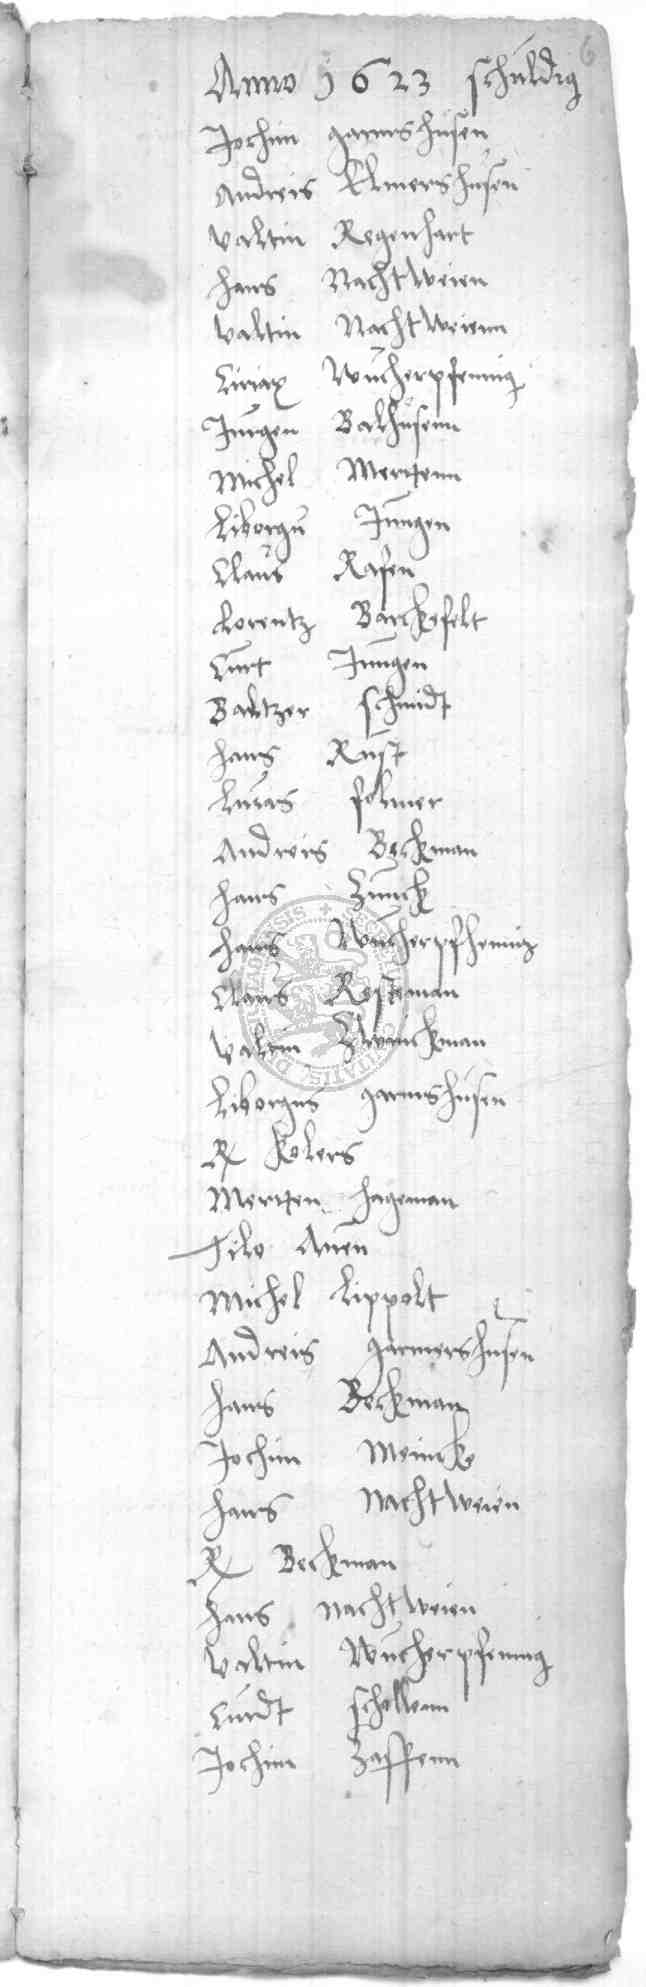 6
Anno 1623 schuldig
Jochim garmshusen
Andreis Elmershusen
Valtin Regenhart
Hans Nachtweien
Valtin Nachtweienn
Ciriax Wucherpfennig
Jurgen Balhusenn
Michel Mertenn
Liborgu Jungen
Claus Rasen
Lorentz Barckefelt
Curt Jungen
Baltzer schmidt
Hans Rust
Lucas felmer
Andreis Beckman
Hans Zunck
Hans Wucherpfhennig
Claus Resteman
Valtin Zwinckman
Liborgus garmshusen
R kolers
Merten Hageman
Tilo Auen
Michel Lippolt
Andreis garmershusen
Hans Beckman
Jochim Meincke
Hans Nachtweien
R Beckman
Hans Nachtweien
Valtin Wucherpfennig
Curdt
Jochim Zaffenn